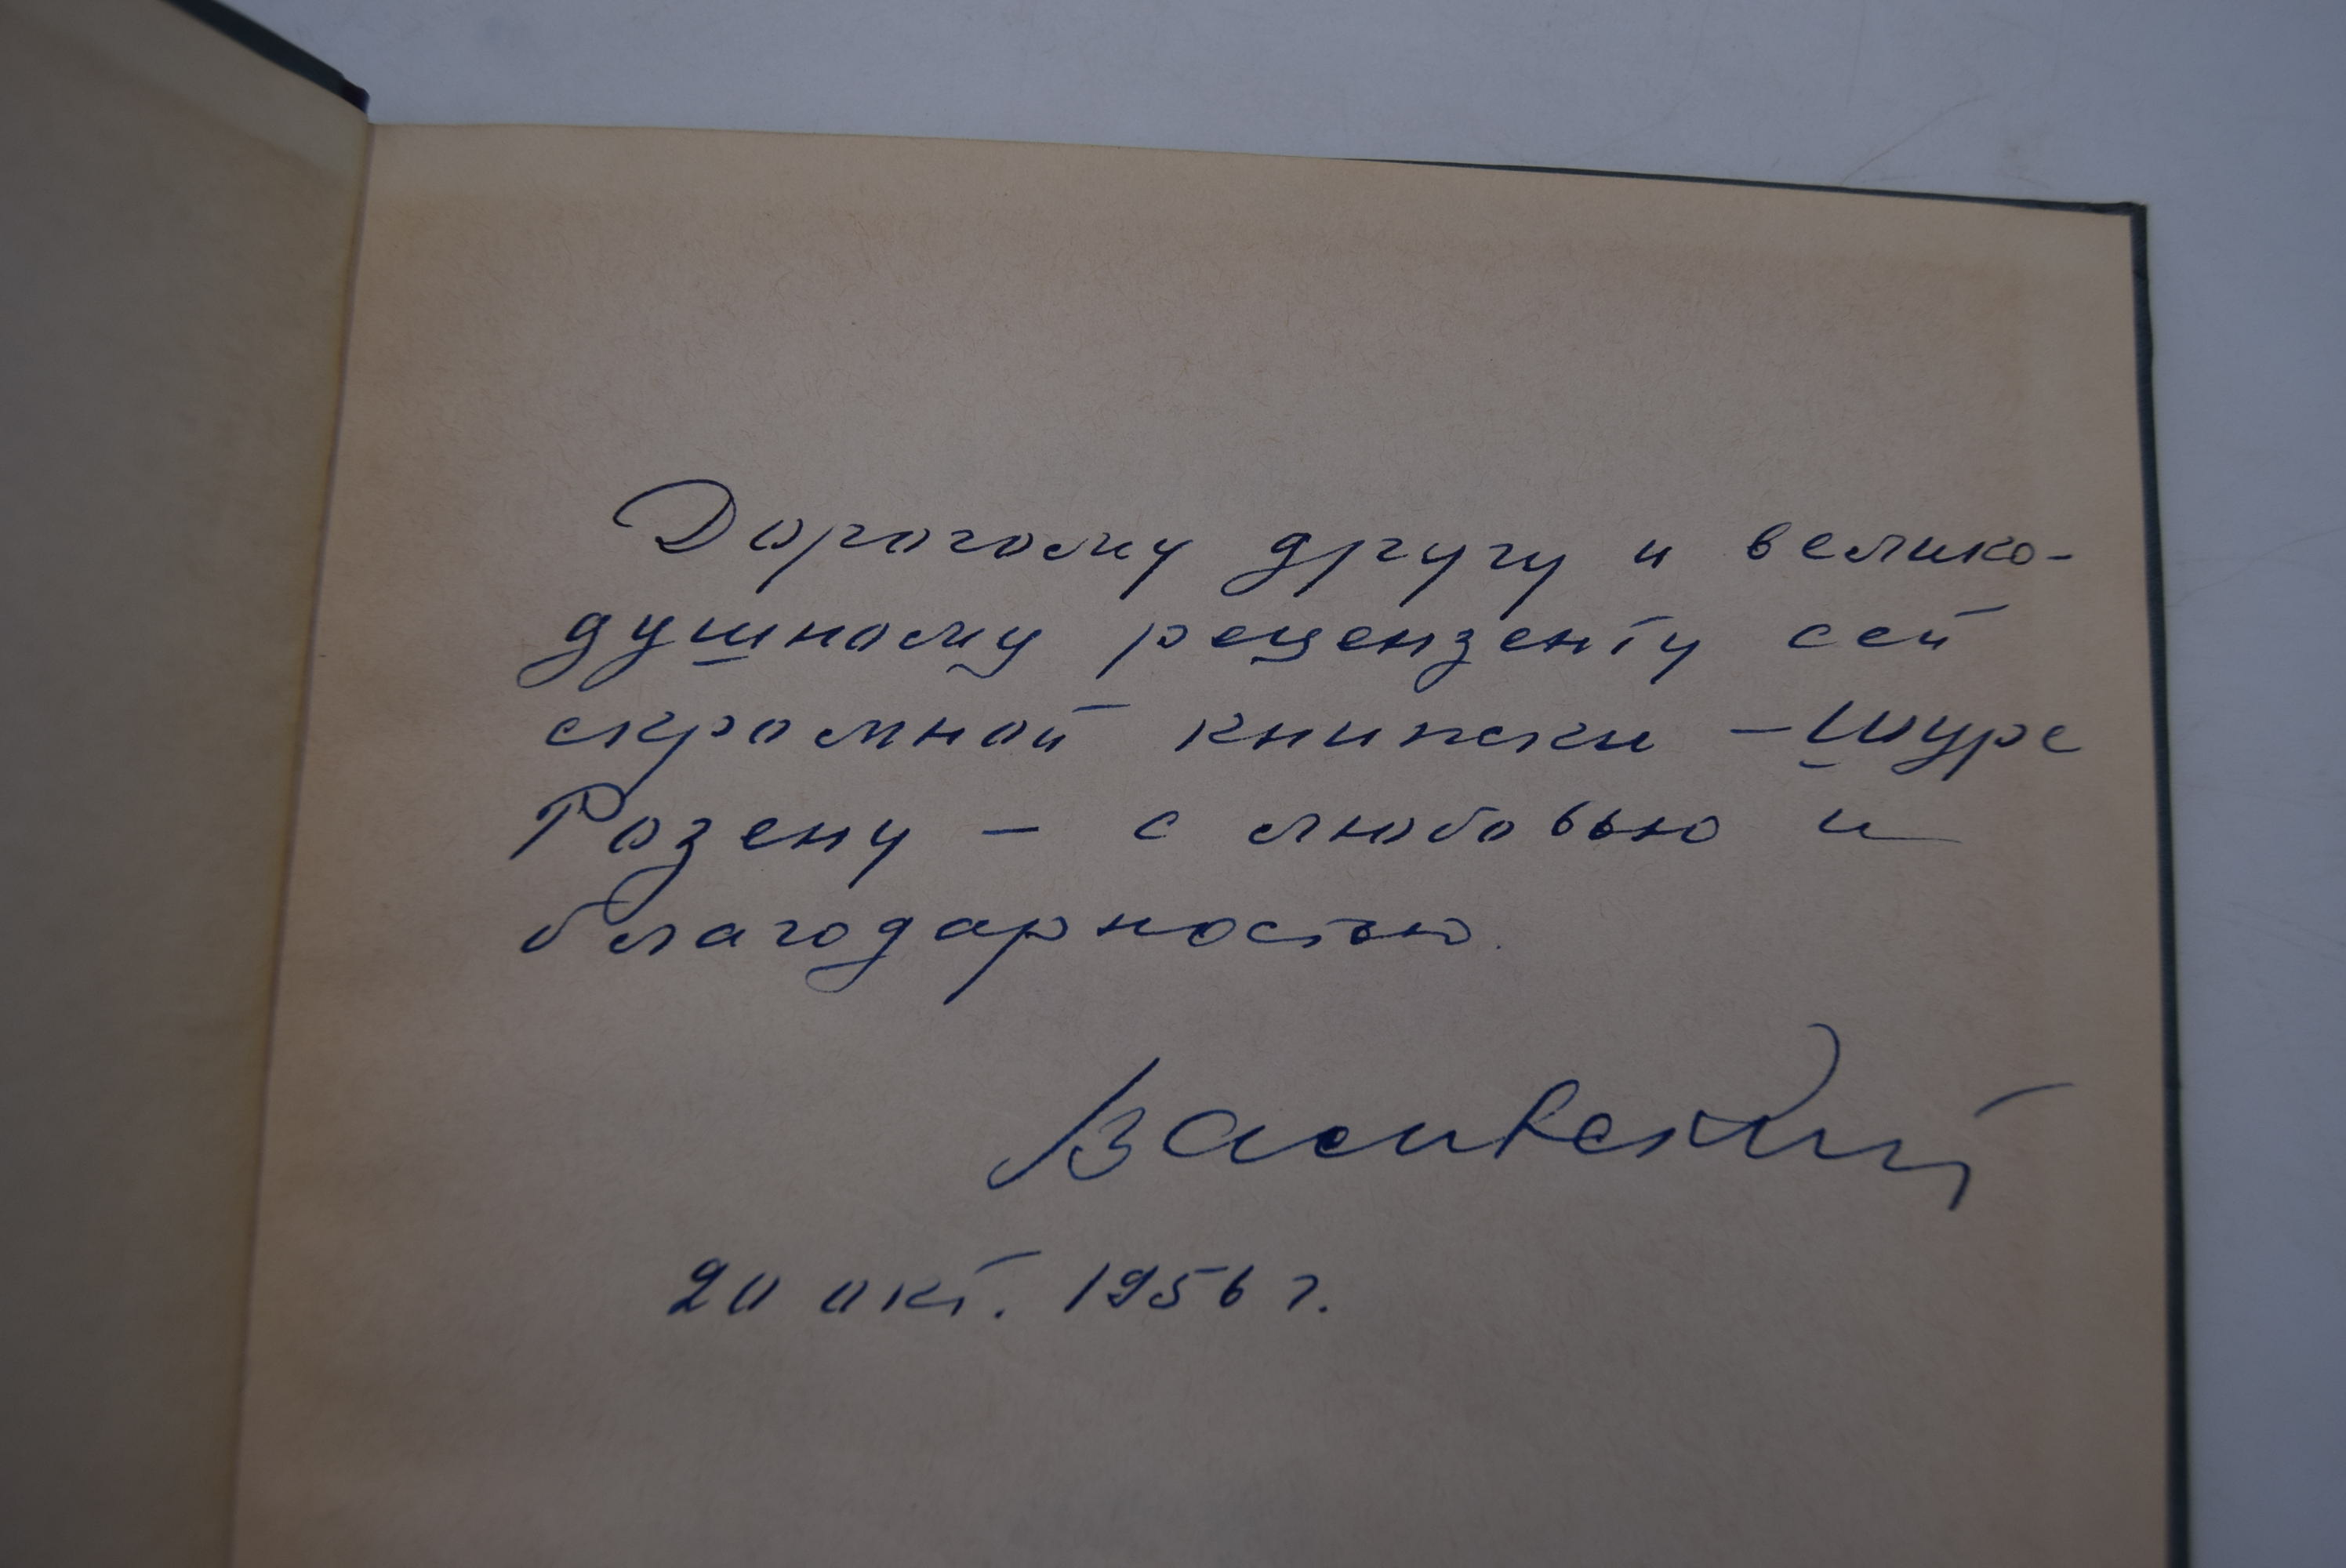 Дорогому другу и велико-
душному рецензенту сей
скромной книжки – Шуре
Розену – с любовью и
благодарностью.
20 окт. 1956 г.